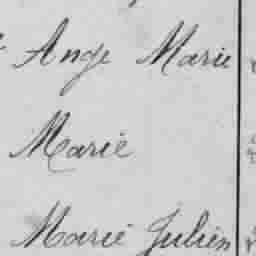 Ange Marie
Marie
Marie Julien